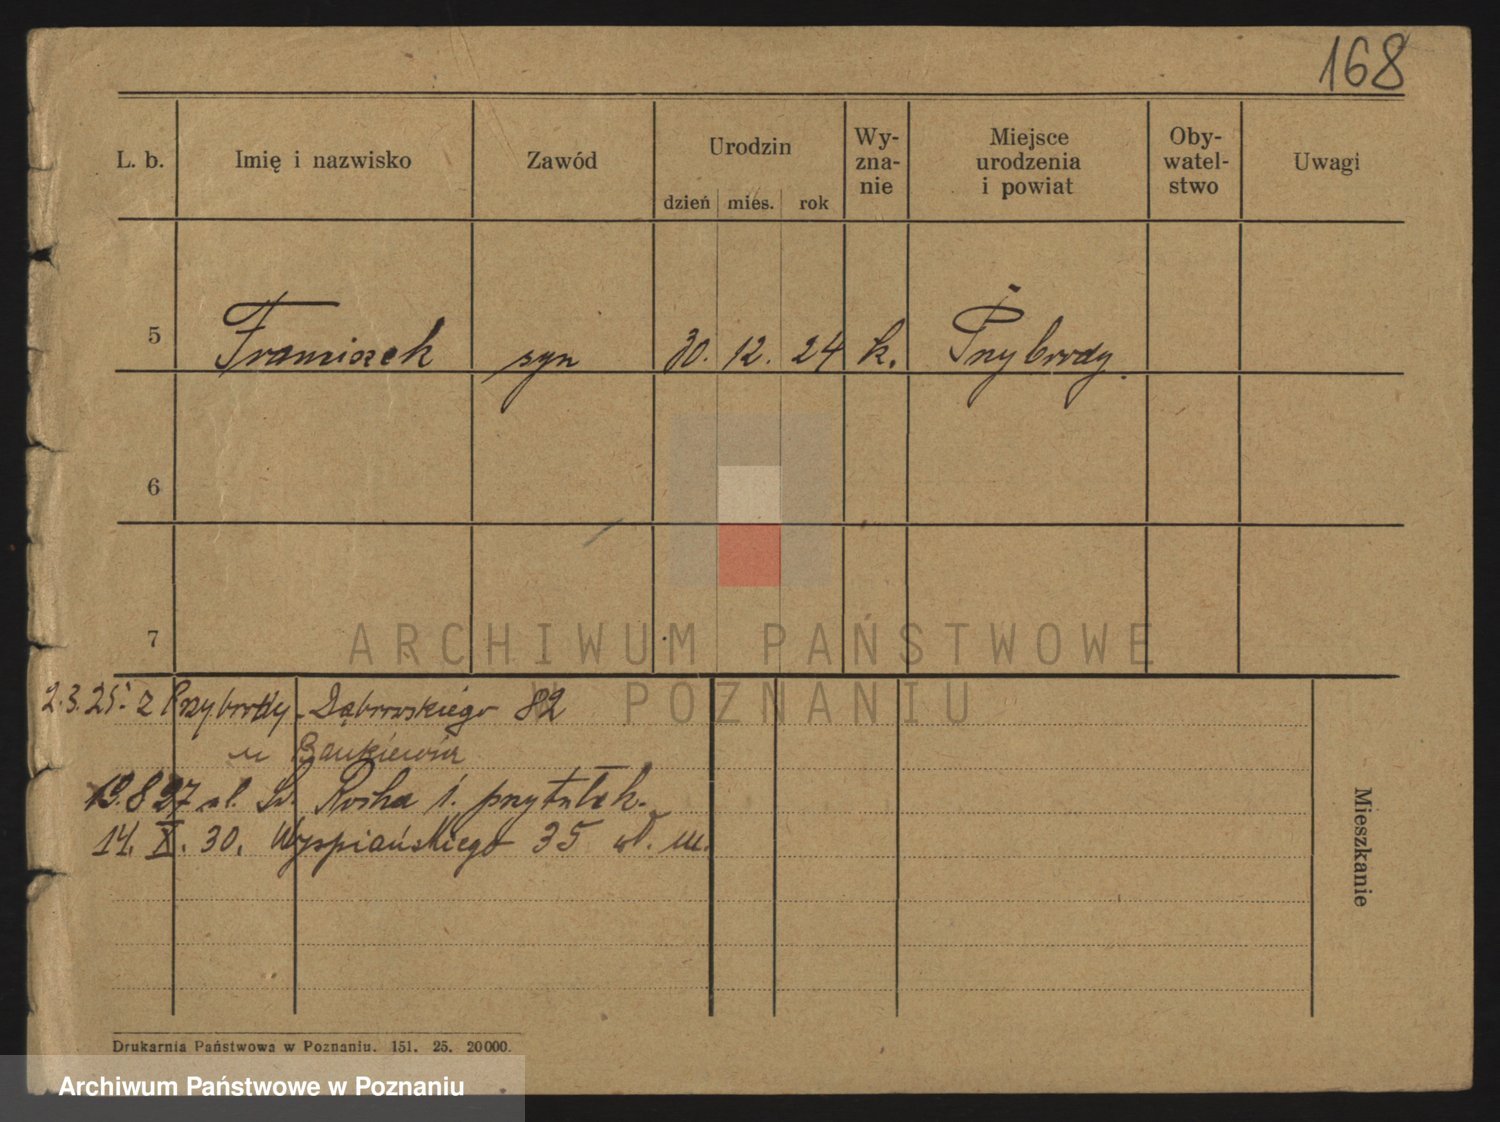 168
L. b. Imię i nazwisko Zawód Urodzin Wy- Miejsce Oby- Uwagi
zna- urodzenia watel-
nie i powiat stwo
dzień mies. rok
5 Franciszek syn 30. 12. 24 k. Przybrody.
6
7
ARCHIWUM PAŃSTWOWE
W POZNANIU
2.3.25. z Przybrody - Dąbrowskiego 82
u
19.8 27 ul. Św. Rocha 1. przytułek.
14. X. 30. Wyspiańskiego 35 wł. m.
Mieszkanie
Drukarnia Państwowa w Poznaniu. 151. 25. 20000.
Archiwum Państwowe w Poznaniu